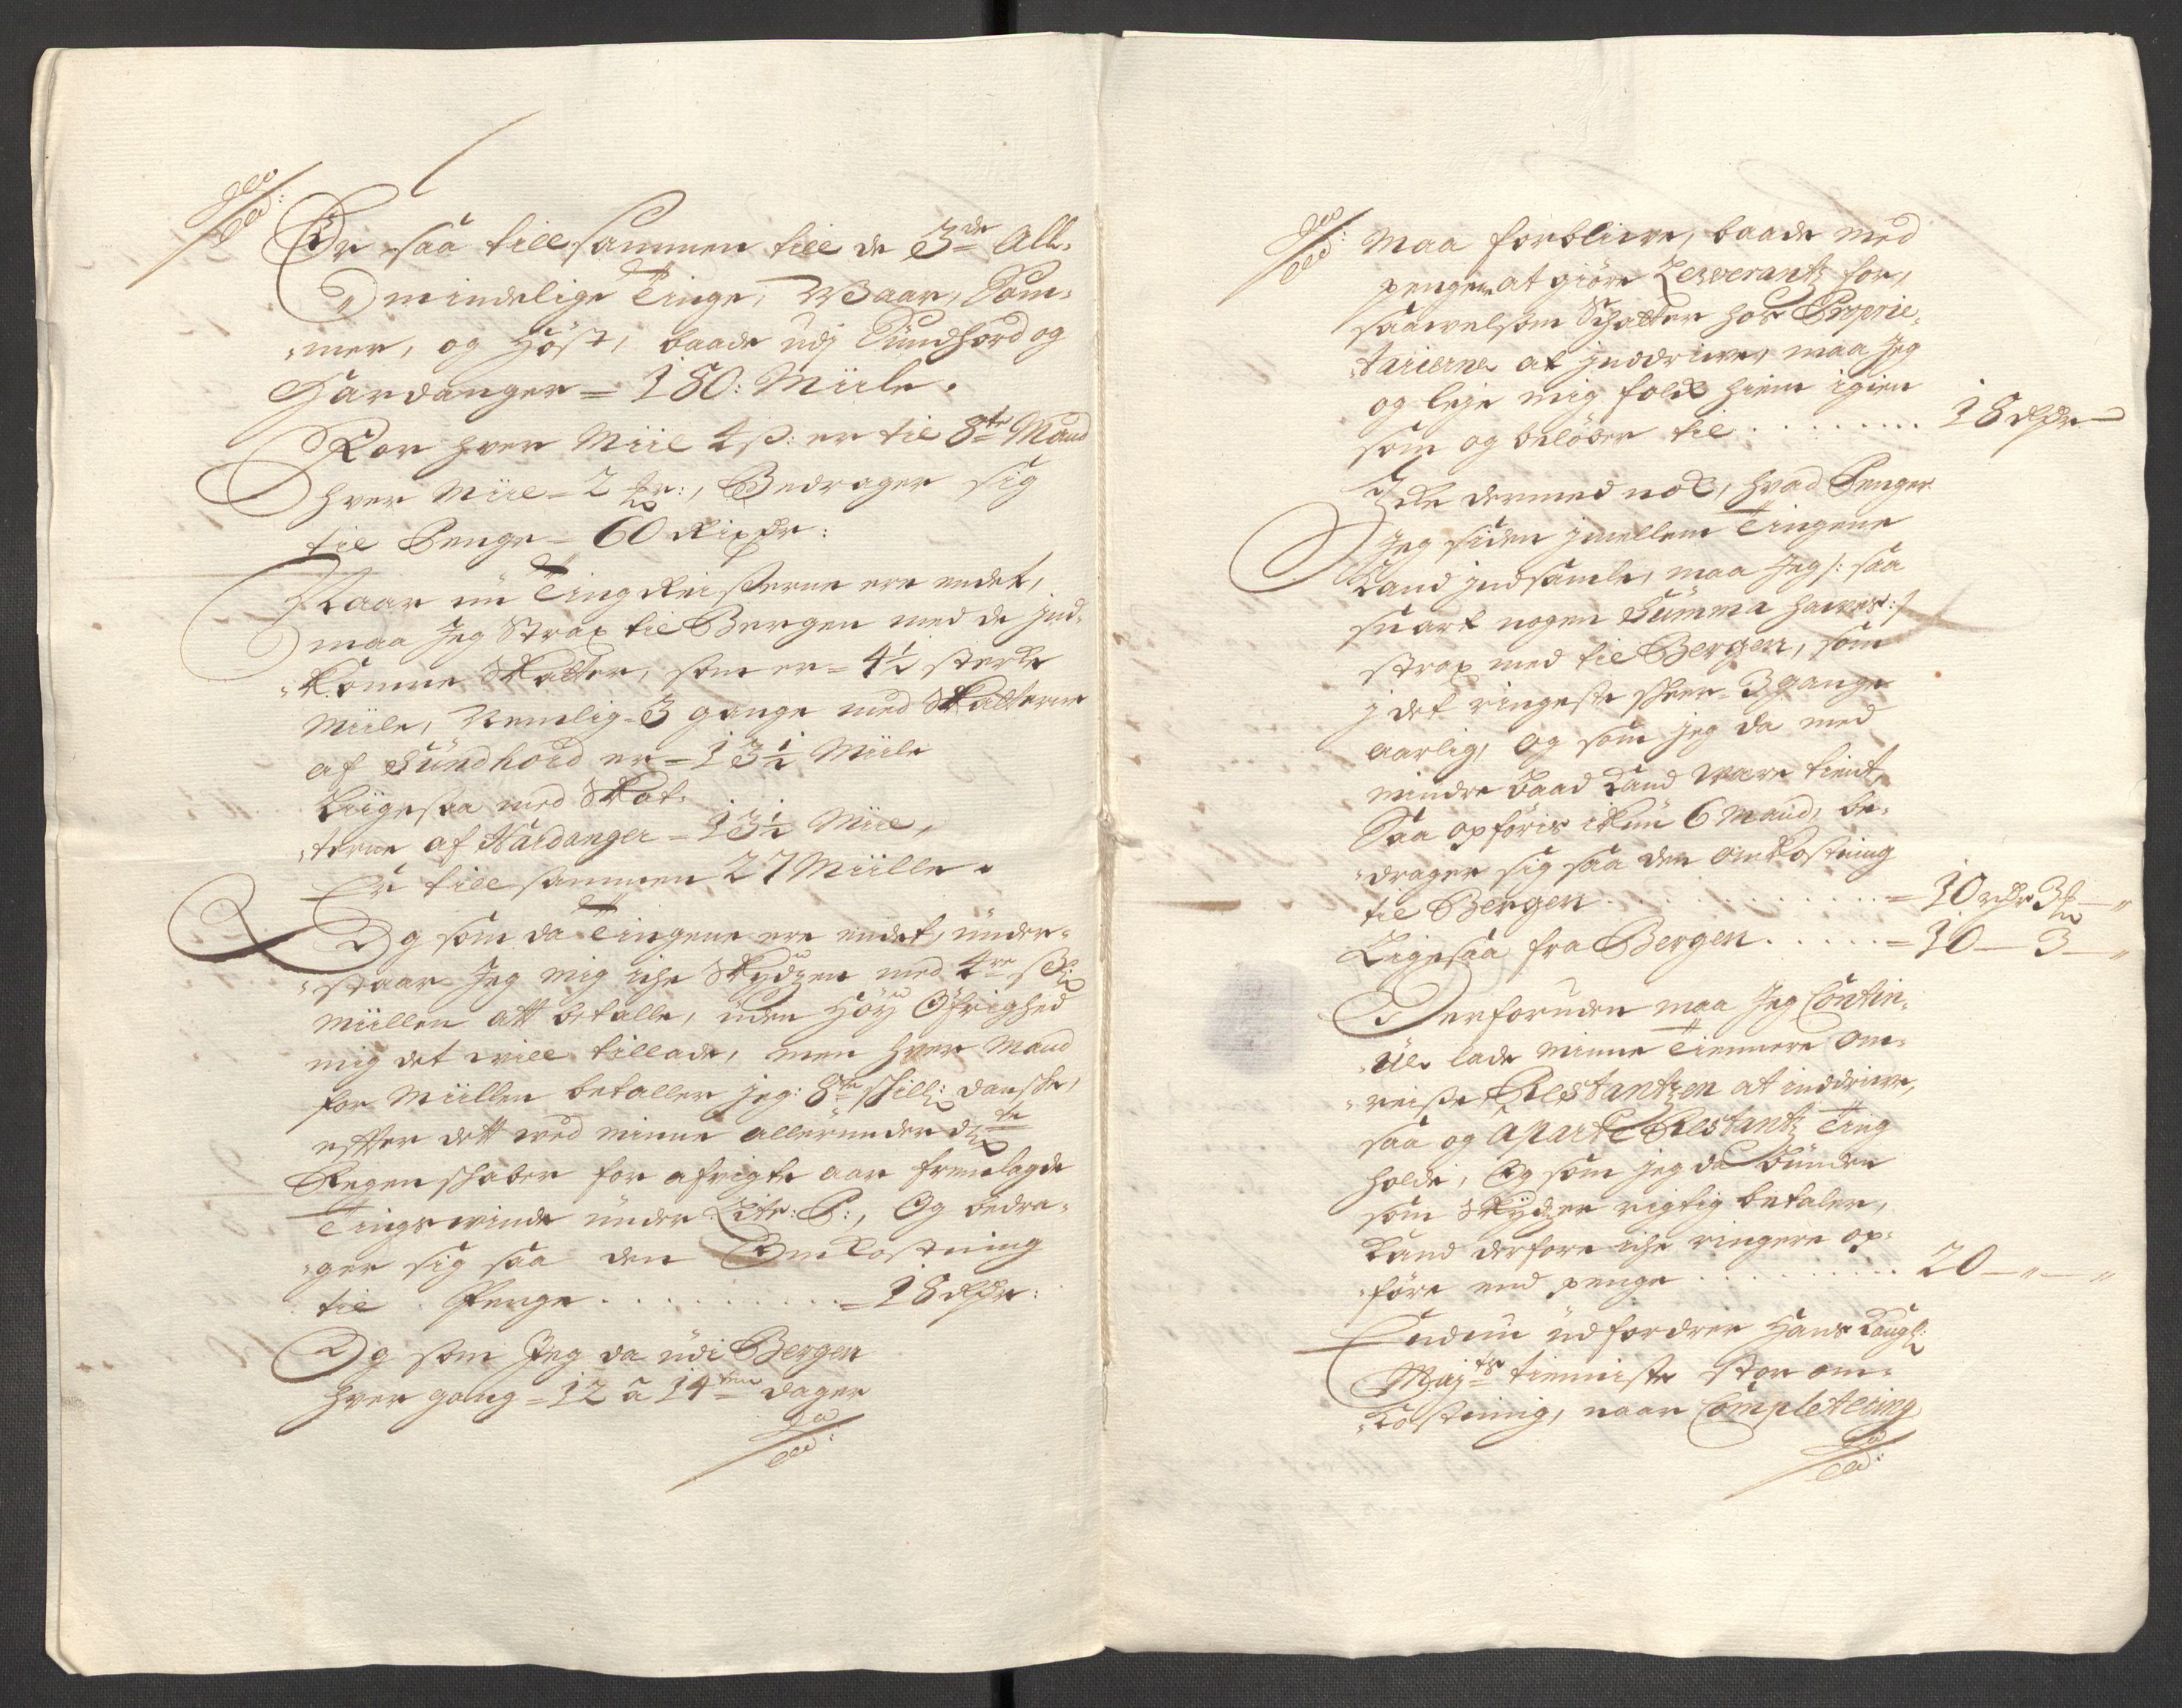 Er saa till sammen till de 3de All-
mindelige Tinge, Waar, Som-
mer, og Höst, baade udj Sundhord og
Hardanger = 180: Miile.
For hver Miil 4 ß: er til 8te Mand
hver Miil = 2 : Bedrager sig
til Penge = 60 Rixdr:
Naar nu Ting Reiserne ere endet,
maa Jeg Strax til Bergen med de ind-
komne Skatter, som er = 4½ sterke
Miile, Nemlig = 3 gange med Skatterne
af Sundhord er = 13½ Miile
Liigesaa med Skat-
terne af Hardanger = 13½ Miil,
Er till sammen 27 Miille.
Og som da Tingene ere endet, under-
staar Jeg mig iche Skydzen med 4re ß:
Miillen att betalle, uden Höy Öfrighed
mig det will tillade, men hver Mand
for Miillen betaller jeg: 8te skill: danske,
effter dett wed minne allerunderdste
Regenskaber for afvigte aar fremlagde
Tingswinde under Litr: P:, Og bedra-
ger sig saa den Omkostning
til Penge . . . . . . . . . = 18 Rdr:
Og som Jeg da udi Bergen
hver gang = 12 à 14ten dager
Maa forblive, baade med
pengene at giöre Leewerantz for,
saavelsom Schatter hos Proprie-
tairerne at jnddrive, maa Jeg
og leje mig folk hiem igien
som og belöber til . . . . . . . . 18 Rdr
Ike dermed nok, hvad Penger
Jeg siden jmellem Tingene
Kand jndsamle, maa Jeg /: saa
snart nogen Summa haves :/
strax med til Bergen, som
j det ringeste skeer = 3 gange
aarlig, og som jeg da med
mindre Baad Kand være tient,
Saa opföris ikun 6 Mand, be-
drager sig saa den omkostning
til Bergen . . . . . . . . . . = 10 rdr 3
Ligesaa fra Bergen . . . . . = 10 — 3 —
Derforuden maa Jeg Contin-
uel lade minne Tiennere om-
reise Restantzen at inddrive,
saa og Aparte Restantz Ting
holde, Og som jeg da bunden
som Skydzer rigtig betaler,
Kand derfore iche ringere op-
före end penge . . . . . . . . 20 —
Endnu udfordrer Hans Kongl:
Majts tienniste stor om-
kostning, naar Completering